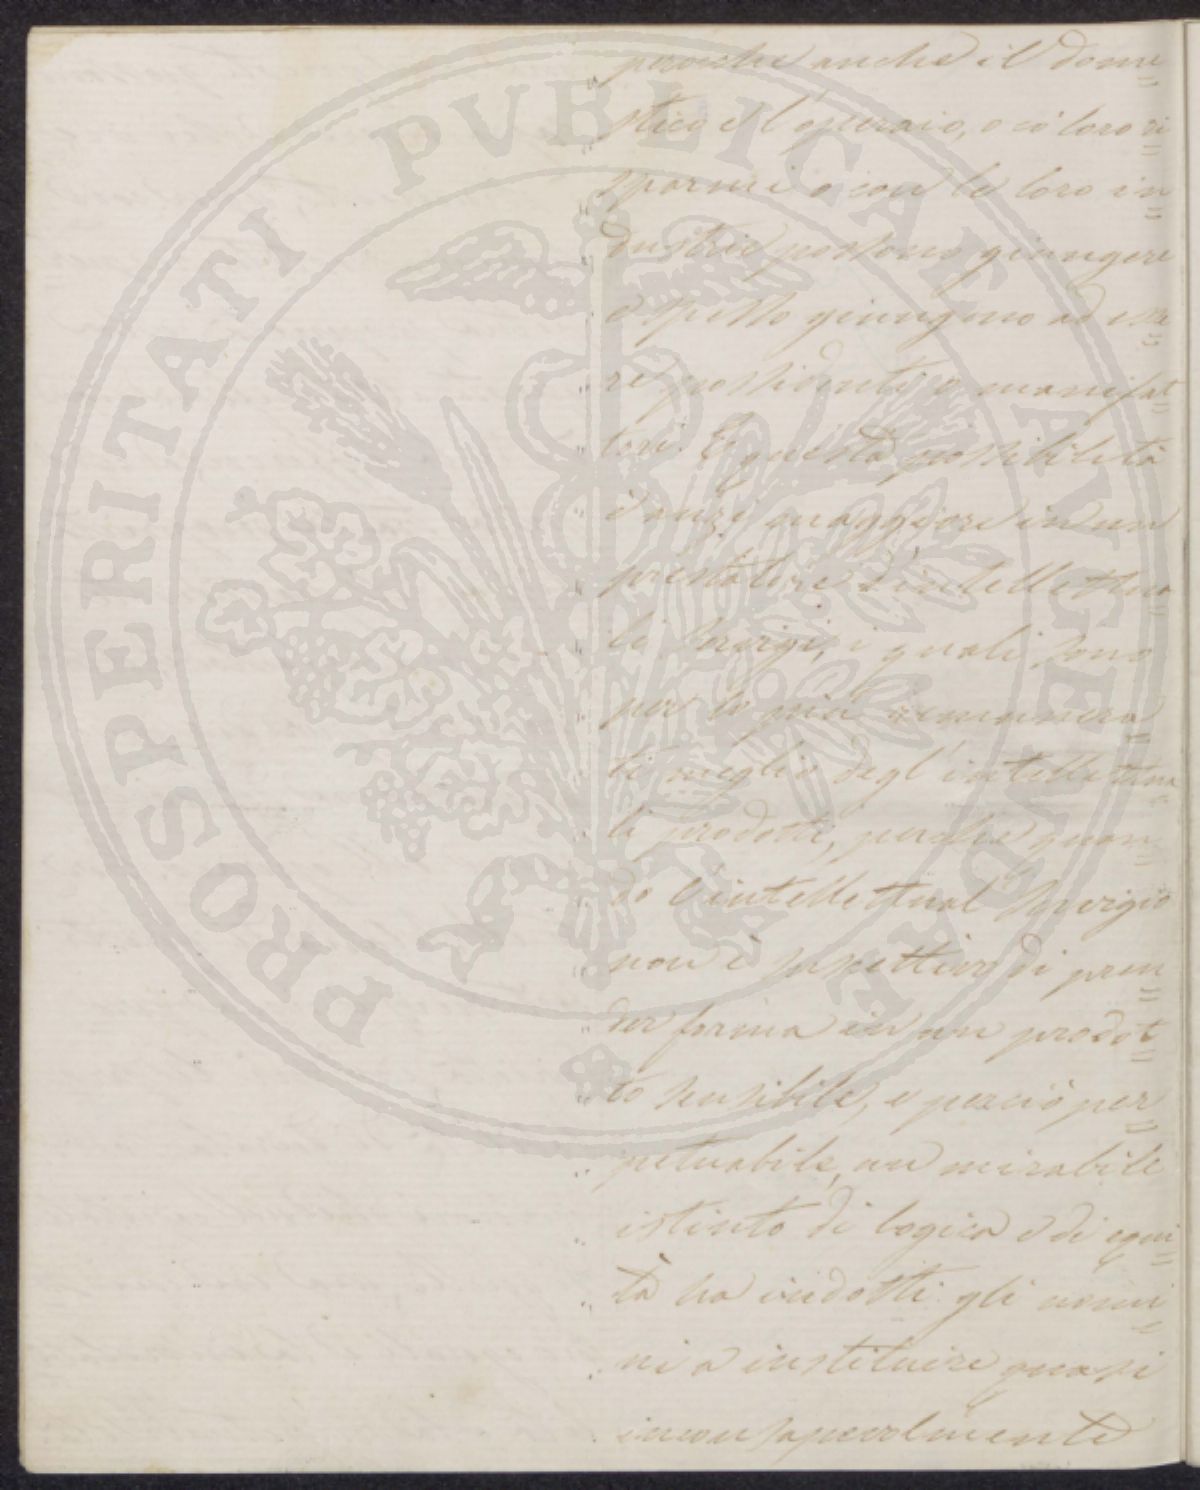 PROSPERITATI PUBLICAE AUGENDAE
" perocche anche il dome=
" stico e l'operaio, o co' loro ri=
" sparmi o con le loro in=
" dustrie possono giungere
" e spesso giungono ad esse=
" re possidenti o manifat=
" tori. E questa possibilità
" è anzi maggiore in un
" prestatore d'intellettua=
" li servigi, i quali sono
" per lo più rimunera=
" ti meglio degl'intellettua=
" li prodotti, perche quan=
" do l'intellettual servigio
" non è suscettivo di pren=
" der forma in un prodot=
" to sensibile, e perciò per=
" petuabile, un mirabile
" istinto di logica e di equi=
" tà ha indotti gli uomi=
" ni a instituire quasi
" inconsapevolmente